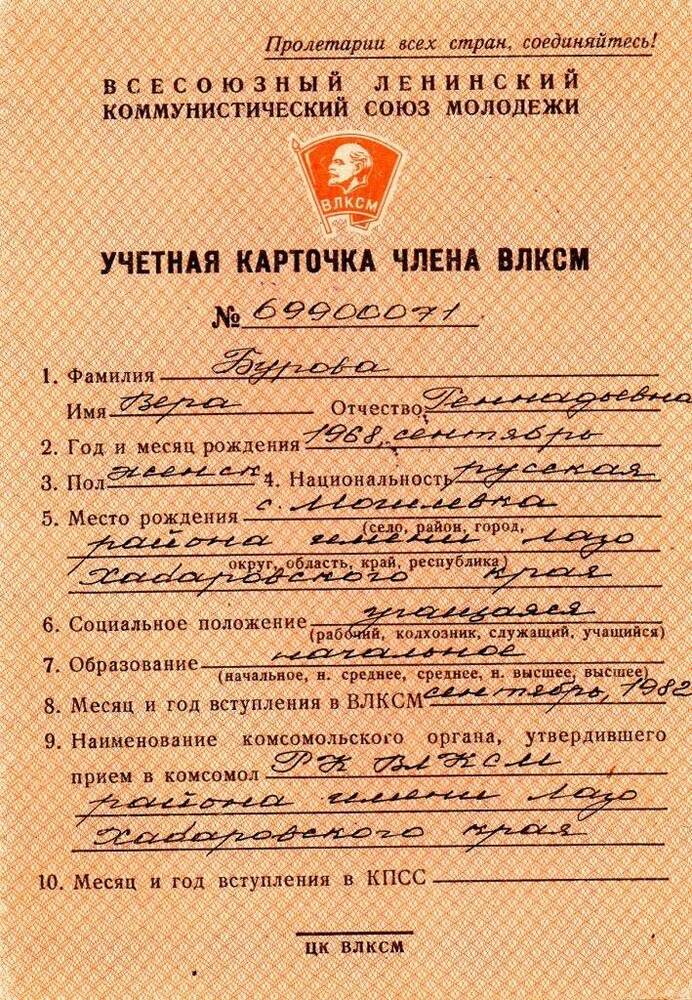 Пролетарии всех стран, соединяйтесь!
ВСЕСОЮЗНЫЙ ЛЕНИНСКИЙ
КОММУНИСТИЧЕСКИЙ СОЮЗ МОЛОДЕЖИ
ВЛКСМ
УЧЕТНАЯ КАРТОЧКА ЧЛЕНА ВЛКСМ
№ 69900071
1. Фамилия Бурова
Имя Вера Отчество Геннадьевна
2. Год и месяц рождения 1968, сентябрь
3. Пол женск. 4. Национальность русская
5. Место рождения с. Могилевка
(село, район, город,
района имени Лазо
округ, область, край, республика)
Хабаровского края
6. Социальное положение учащаяся
(рабочий, колхозник, служащий, учащийся)
7. Образование начальное
(начальное, н. среднее, среднее, н. высшее, высшее)
8. Месяц и год вступления в ВЛКСМ сентябрь, 1982
9. Наименование комсомольского органа, утвердившего
прием в комсомол РК ВЛКСМ
района имени Лазо
Хабаровского края
10. Месяц и год вступления в КПСС
ЦК ВЛКСМ